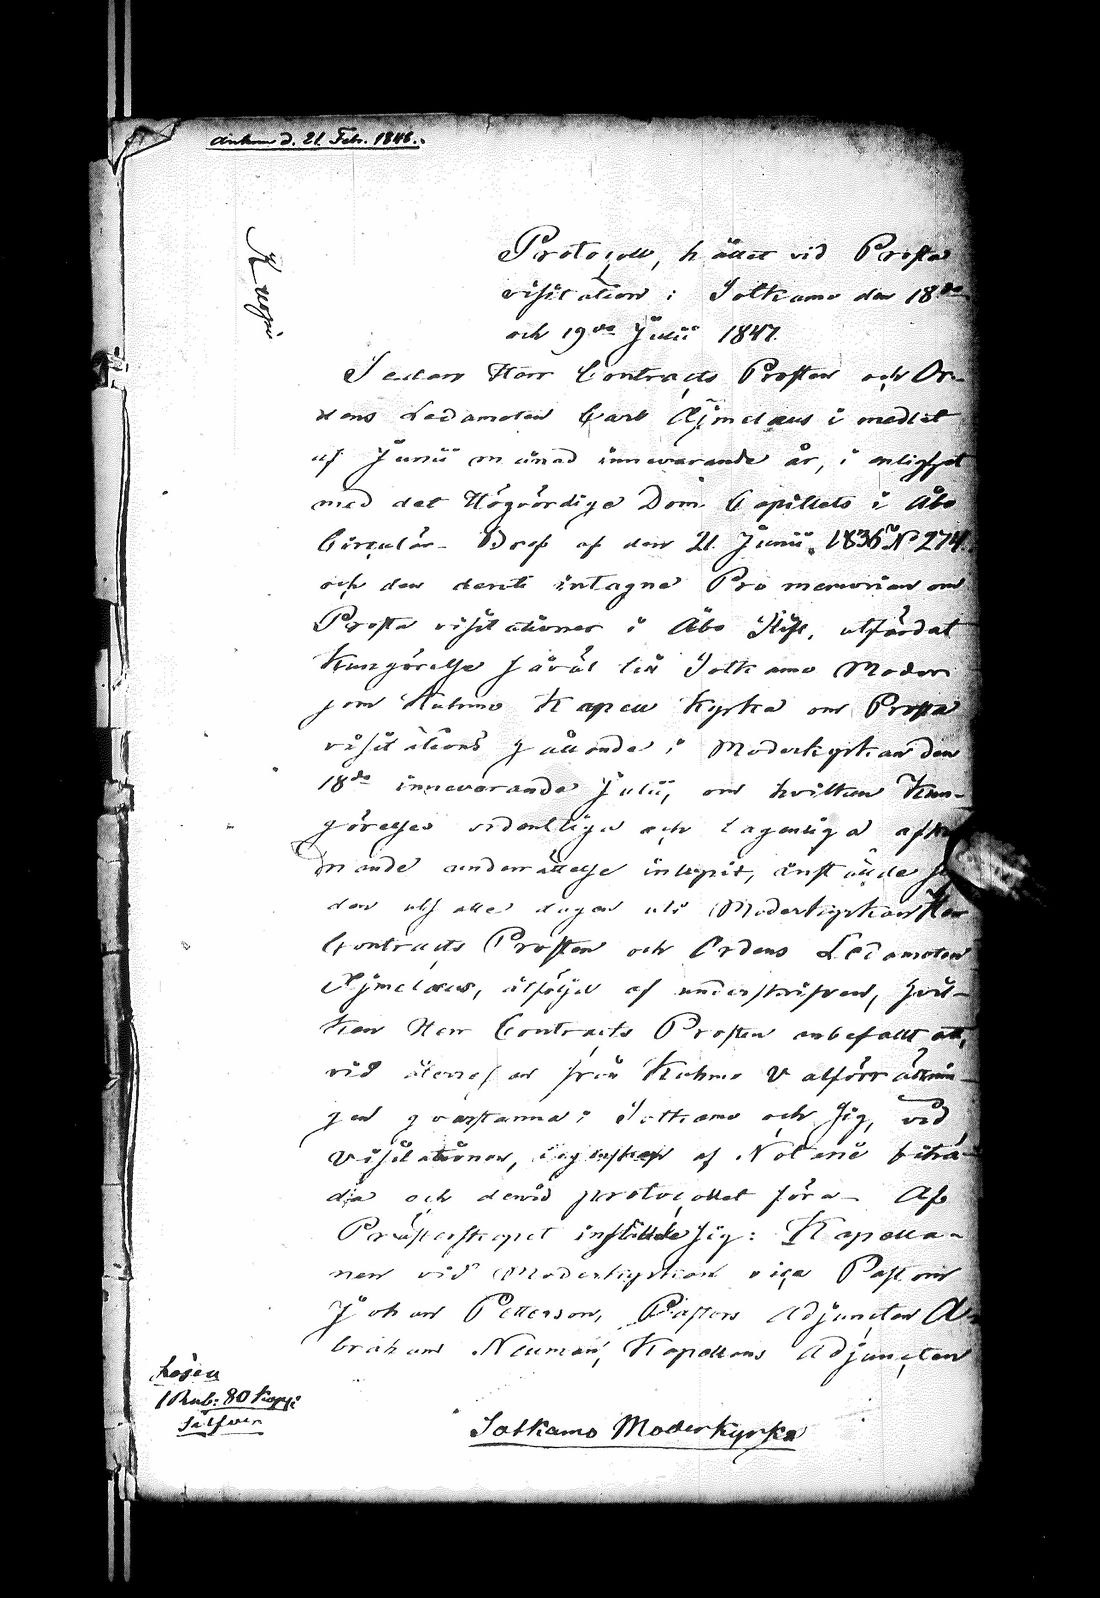 Ankom d. 21. Febr. 1848.
Kuopio
Protocoll, hållet vid Prosta
visitation i Sotkamo den 18de
och 19de Julii 1847.
Sedan Herr Contracts Prosten och Or-
dens Ledamoten Carl Ajmelæus i medlet
af Junii månad innevarande år, i enlighet
med det Högvördige Dom Capitlets i Åbo
Circulär-Bref af den 21 Junii 1836 No 274
och den deruti intagne Pro memorian om
Prosta visitationer i Åbo Stift, utfärdat
Kungörelse såväl till Sotkamo Moder
som Kuhmo Kapell Kyrka om Prosta
visitations hållande i Moderkyrkan den
18de innevarande Julii, om hvilken Kun-
görelses ordentliga och lagenliga
nande underrättelse inlupit, instälde
den utsatte dagen uti Moderkyrkan Herr
Contracts Prosten och Ordens Ledamoten
Ajmelæus, åtföljd af underskrifven, hvil-
ken Herr Contracts Prosten anbefallt att,
vid återresan från Kuhmo Valförrättnin-
gen qvarstanna i Sotkamo och sig, vid
Visitationen, i egenskap af Notarie biträ-
da och dervid protocollet föra. Af
Presterskapet instälde sig: Kapella-
nen vid Moderkyrkan vice Pastorn
Johan Petterson, Pastors Adjuncten A-
braham Neuman, Kapellans Adjuncten
Lösen
1 Rub: 80 Kop:
Silfver
Sotkamo Moderkyrka